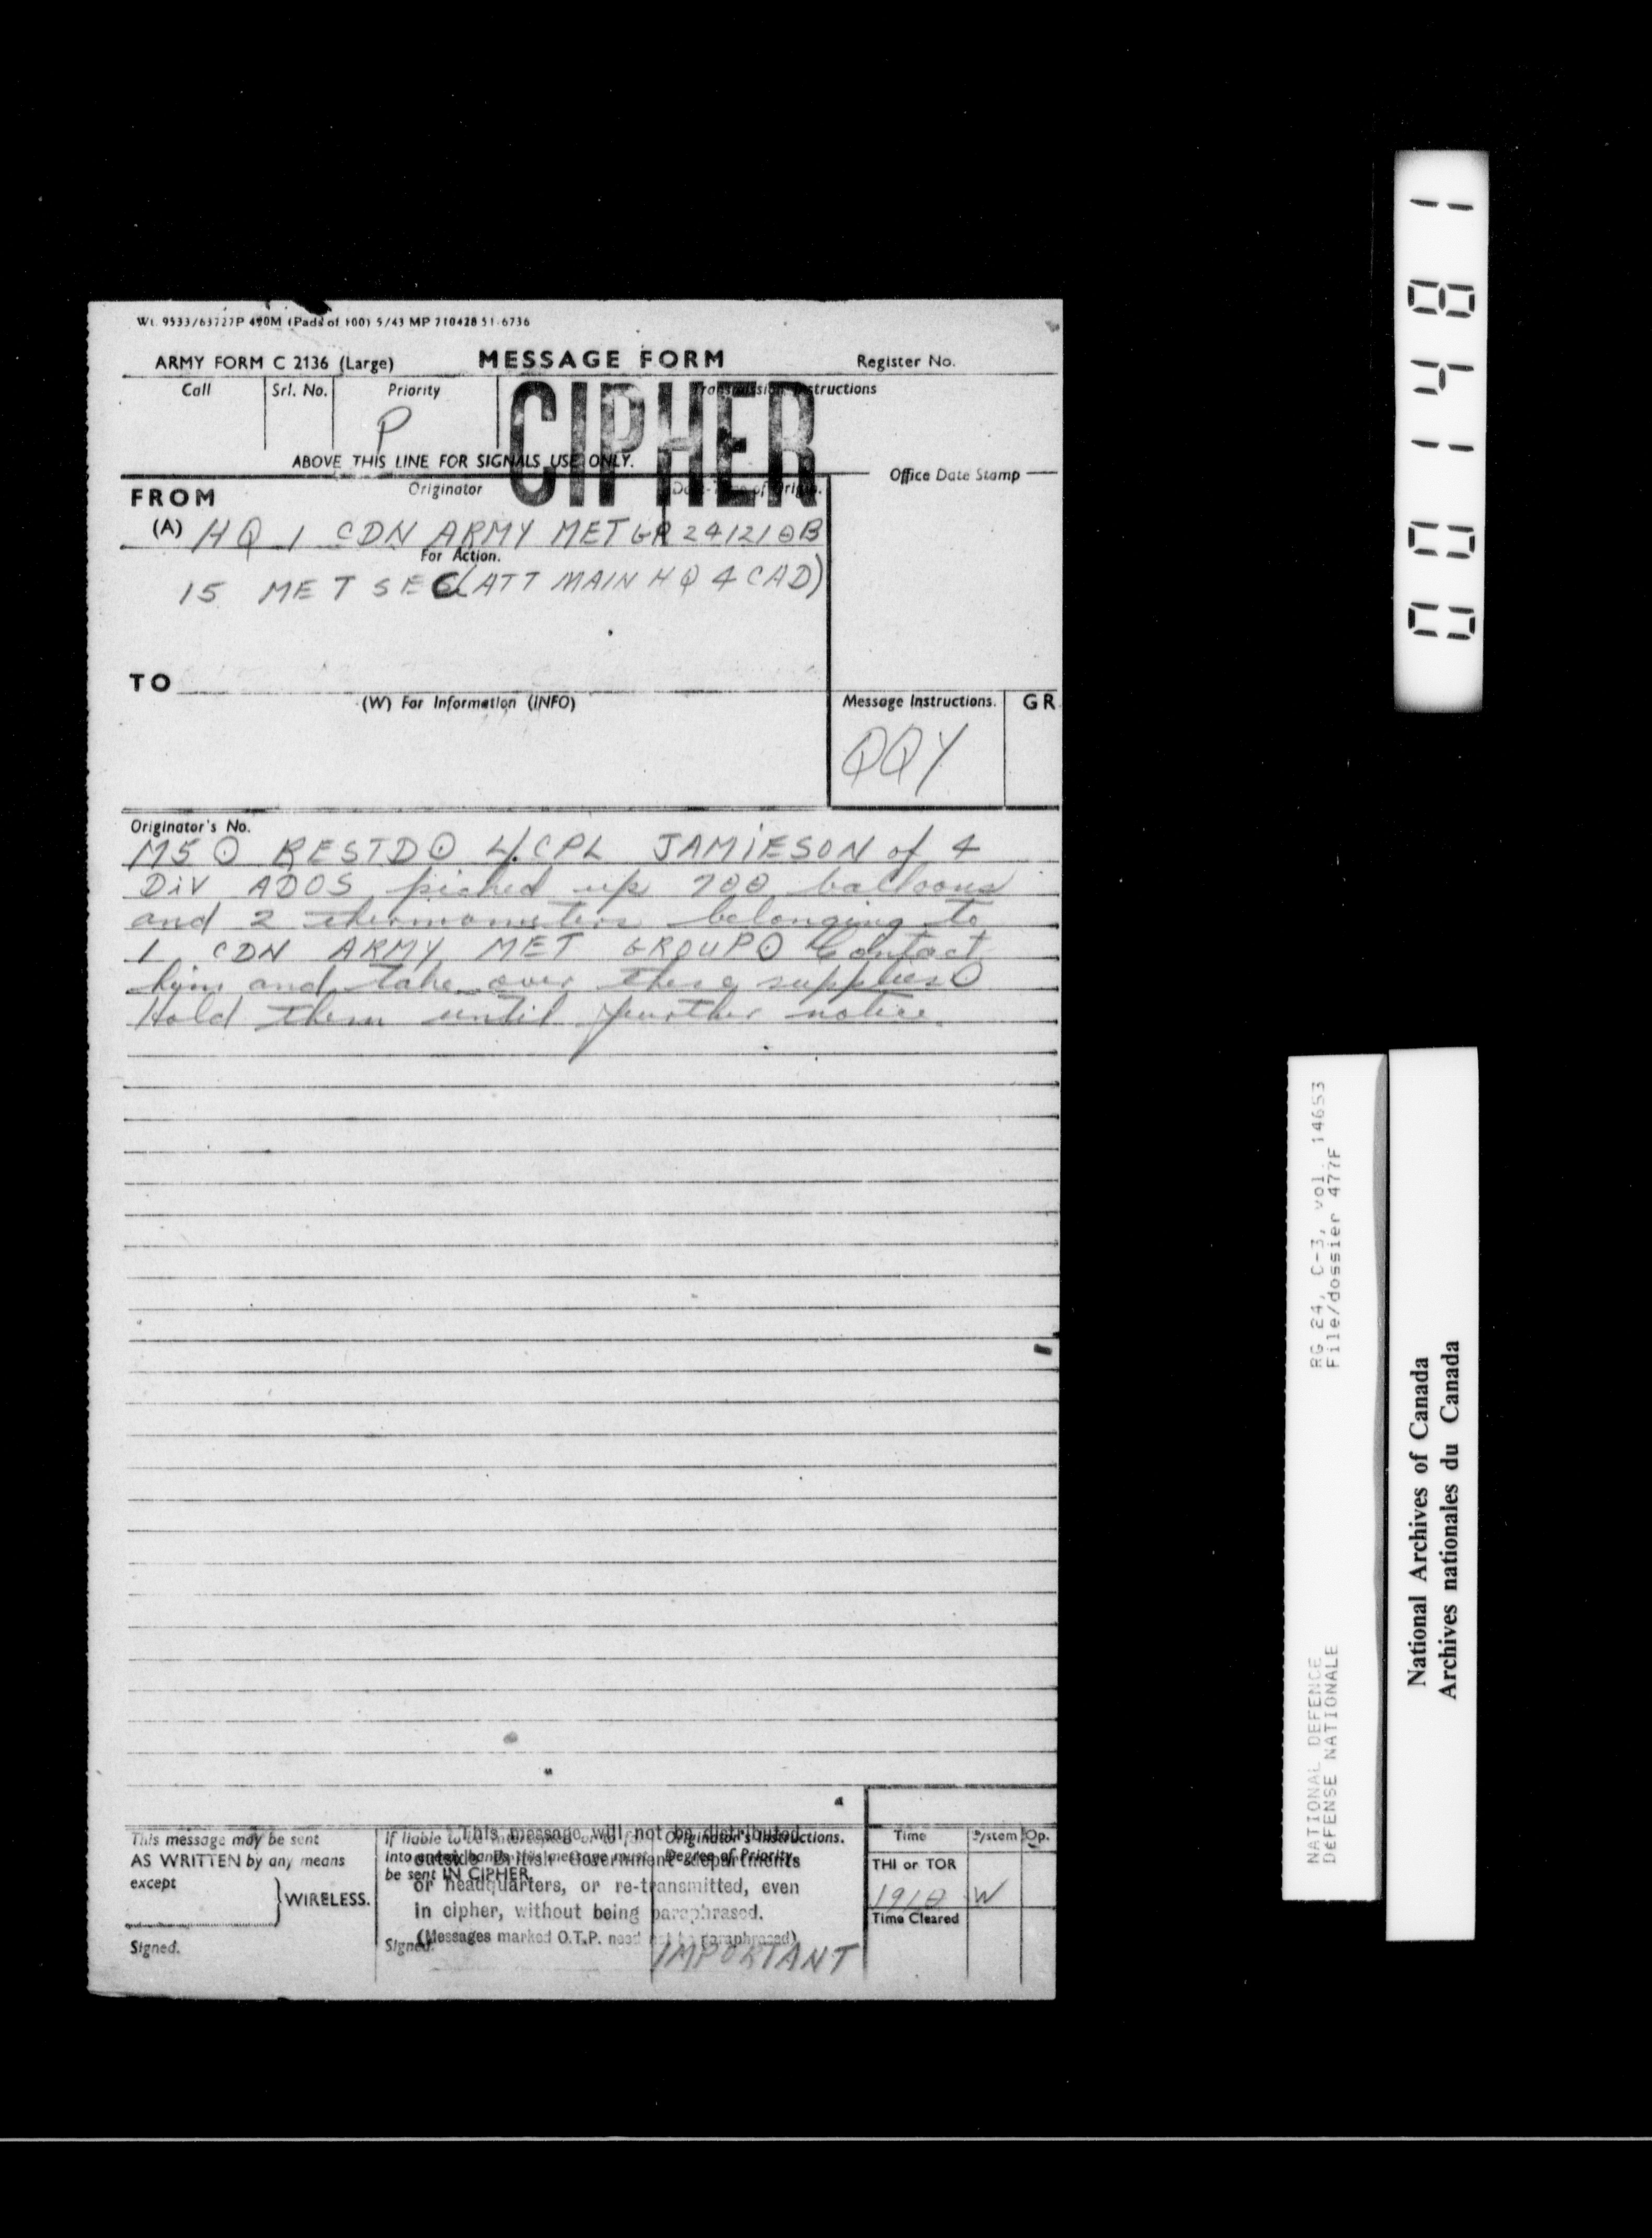 Wt. 9533/63727P 490M (Pads of 100) 5/43 MP 710428 51-6736
ARMY FORM C 2136 (Large) MESSAGE FORM Register No.
Call Srl. No. Priority Transmission Instructions
P
CIPHER
ABOVE THIS LINE FOR SIGNALS USE ONLY.
Office Date Stamp
FROM Originator Date-Time of Origin.
(A) HQ 1 CDN ARMY MET GR 241210B
For Action.
15 MET SEC (ATT MAIN HQ 4 CAD)
TO
(W) For Information (INFO) Message Instructions. GR
QQY
Originator's No.
M5 ⊙ RESTD ⊙ L/CPL JAMIESON of 4
DIV ADOS picked up 700 balloons
and 2 thermometers belonging to
1 CDN ARMY MET GROUP ⊙ Contact
him and take over these supplies ⊙
Hold them until further notice.
This message may be sent
AS WRITTEN by any means
except
WIRELESS.
Signed.
If liable to be intercepted or to fall
into enemy hands this message must
be sent IN CIPHER.
Signed.
This message will not be distributed
outside British Government Departments
or headquarters, or re-transmitted, even
in cipher, without being paraphrased.
(Messages marked O.T.P. need not be paraphrased)
Originator's Instructions.
Degree of Priority.
IMPORTANT
Time System Op.
THI or TOR
1910 W
Time Cleared
001481
NATIONAL DEFENCE RG 24, C-3, vol. 14653
DéFENSE NATIONALE File/dossier 477F
National Archives of Canada
Archives nationales du Canada